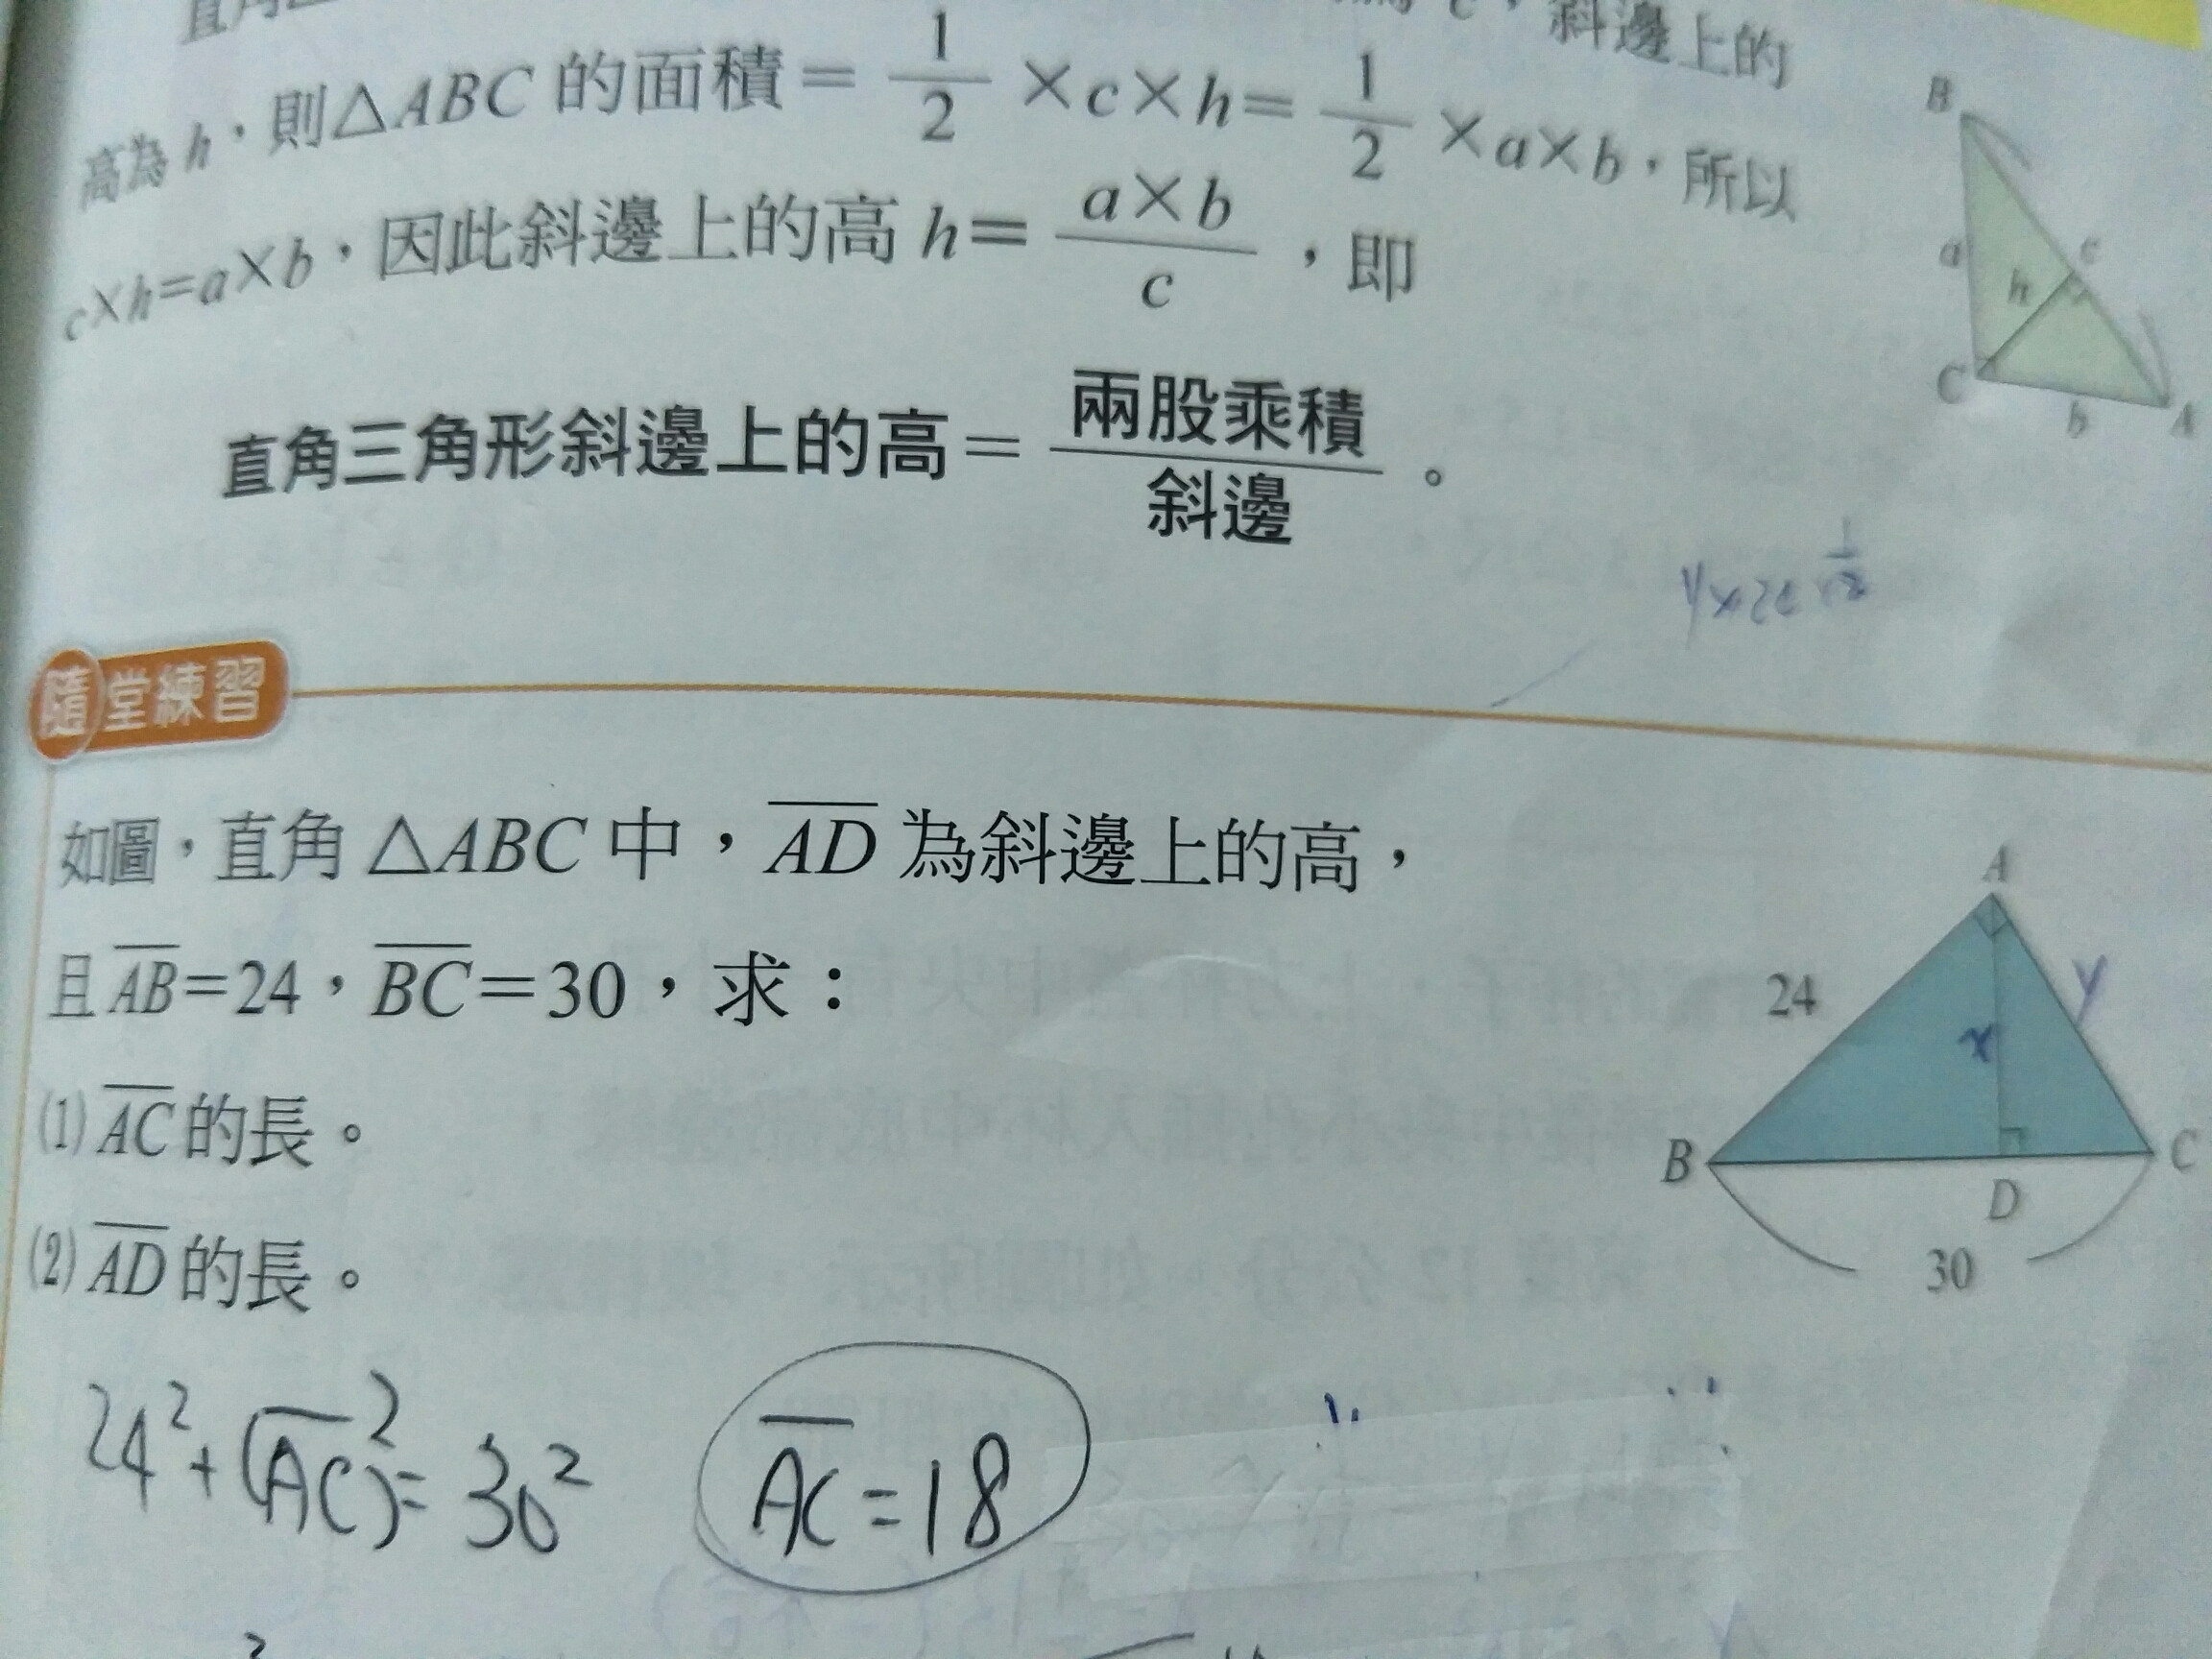 c，斜邊上的
高為 h，則△ABC 的面積＝1/2×c×h＝1/2×a×b，所以
c×h＝a×b，因此斜邊上的高 h＝a×b/c，即
直角三角形斜邊上的高＝兩股乘積/斜邊。
B
a
h
c
C
b
A
隨堂練習
如圖，直角 △ABC 中，AD 為斜邊上的高，
且 AB＝24，BC＝30，求：
(1) AC 的長。
(2) AD 的長。
A
24
x
y
B
D
C
30
24²+(AC)²=30²
AC=18